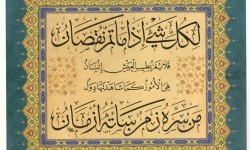 لكل شيء إذا ما تم نقصان
فلا يغر بطيب العيش إنسان
هي الأمور كما شاهدتها دول
من سره زمن ساءته أزمان